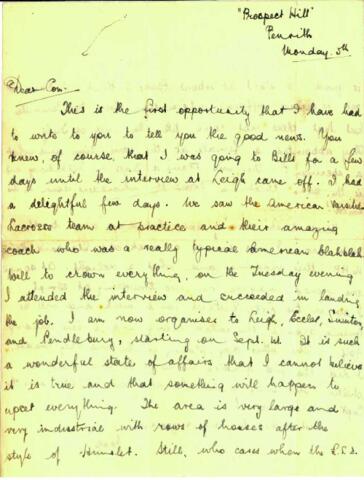 "Prospect Hill"
Penrith
Monday. 5th
Dear Con,
This is the first opportunity that I have had
to write to you to tell you the good news. You
knew, of course, that I was going to Bills for a few
days until the interview at Leigh came off. I had
a delightful few days. We saw the American
Lacrosse team at practice and their amazing
coach who was a really typical American blahblah
Well to crown everything, on the Tuesday evening
I attended the interview and succeeded in landing
the job. I am now organiser to Leigh, Eccles, Swinton
and Pendlebury, starting on Sept. 1st It is such
a wonderful state of affairs that I cannot believe
it is true and that something will happen to
upset everything. The area is very large and
very industrial with rows of houses after the
style of Hunslet. Still, who cares when the